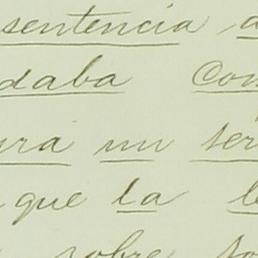 sentencia
daba Con
ura un ser
que la l
sobre so